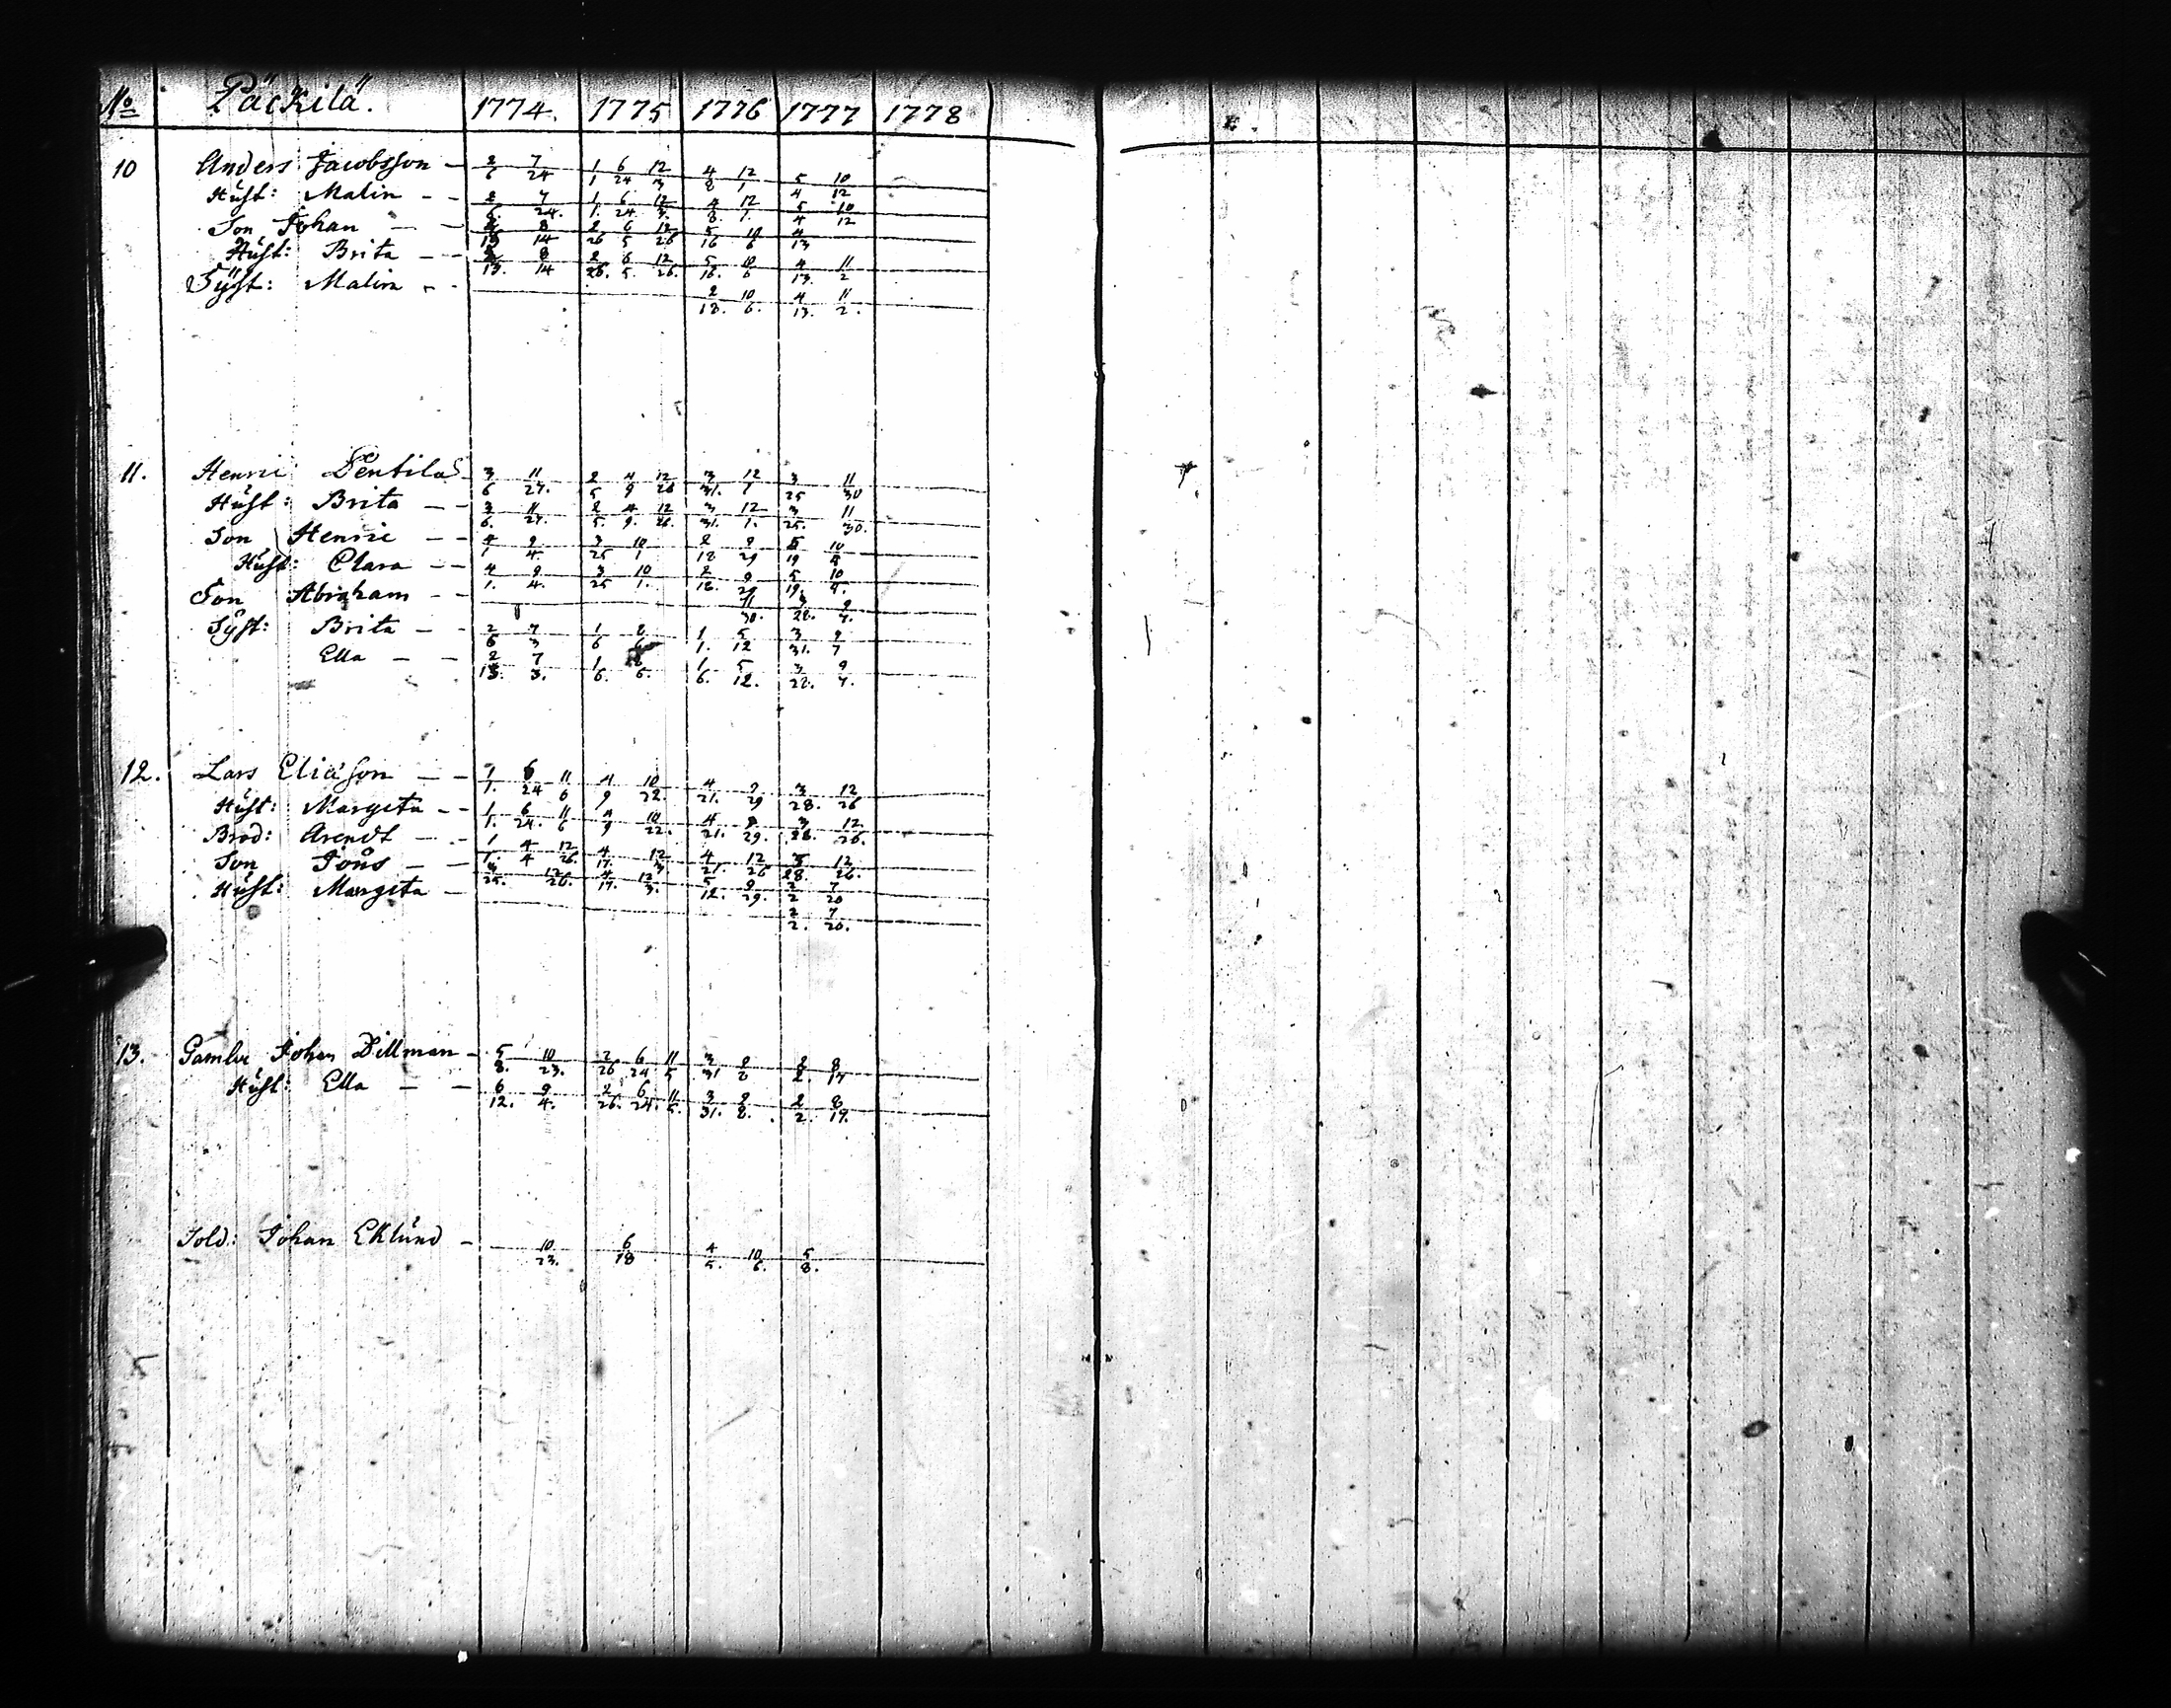 No Päckilä. 1774. 1775 1776 1777 1778
10 Anders Jacobsson - 2/6 7/24 1/1 6/24 12/3 4/8 12/1 5/4 10/12
Hust: Malin - - 2/6. 7/24. 1/1. 6/24 12/3. 4/8. 12/1. 5/4 10/12
Son Johan - - 8/14 2/26 6/5 12/26 5/16 10/6 4/13
Hust: Brita - - 8/14 2/26. 6/5. 12/26. 5/16. 10/6 4/13. 11/2
Syst: Malin - - 2/18. 10/6. 4/13. 11/2.
11. Henric Pentila 3/6 11/27. 2/5 4/9 12/26 3/31. 12/1 3/25 11/30
Hust: Brita - - 3/6. 11/27. 2/5. 4/9. 12/26. 3/31. 12/1. 3/25. 11/30.
Son Henric - - 4/1 9/4. 3/25 10/1 2/18 9/29 5/19 10/5
Hust: Clara - - 4/1. 9/4. 3/25 10/1. 2/18. 9/29 5/19. 10/5.
Son Abraham - - 11/30. 3/28. 9/7.
Syst: Brita - - 2/6 7/3 1/6 1/1. 5/12 3/31. 9/7
Ella - - 2/13. 7/3. 1/6. 1/6. 5/12. 3/28. 9/7.
12. Lars Eliasson - - 1/1. 6/24 11/6 4/9 10/22. 4/21. 9/29 3/28. 12/26
Hust: Margeta - - 1/1. 6/24. 11/6 4/9 10/22. 4/21. 9/29. 3/28. 12/26.
Brod: Arendt - - 1/1. 4/4 12/26 4/17. 12/3 4/21. 12/26 3/28. 12/26.
Son Jöns - - 3/25. 12/26. 4/17. 12/3. 5/12. 9/29. 2/2 7/20
Hust: Margeta - 2/2. 7/20.
13. Gamla Johan Dillman - 5/8. 10/23. 2/26 6/24 11/5 3/31 8/8 2/2. 8/17
Hust: Ella - - 6/12. 9/4. 2/26. 6/24. 11/5. 3/31. 8/8. 2/2. 8/17.
Sold: Johan Eklund - 10/23. 6/18 4/5. 10/6. 5/8.